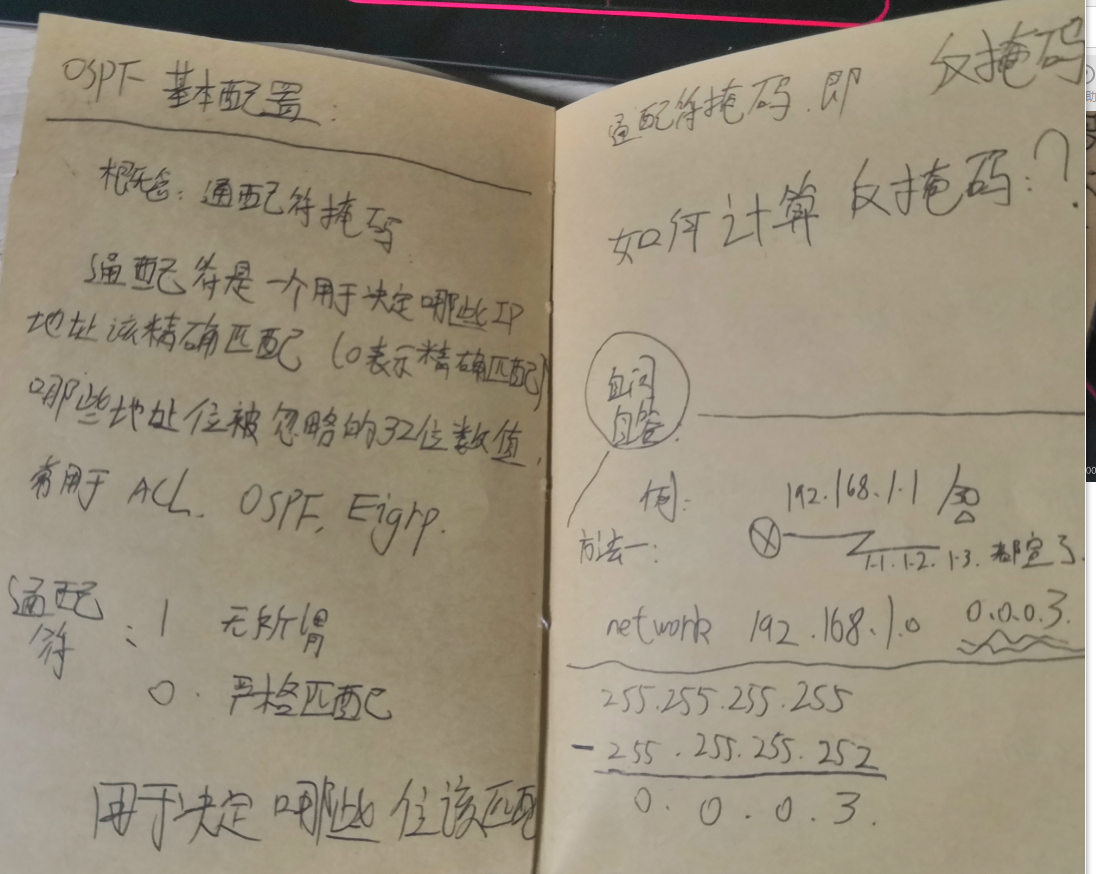 OSPF 基本配置:
概念: 通配符掩码
通配符是一个用于决定哪些IP
地址该精确匹配 (0表示精确匹配)
哪些地址位被忽略的32位数值.
常用于 ACL. OSPF, Eigrp.
通配
符 : 1 无所谓
0. 严格匹配
用于决定 哪些 位该匹配
通配符掩码.即 反掩码
如何计算 反掩码:?
自问
自答.
例: 192.168.1.1 /30
方法一:
1.1. 1.2. 1.3. 都宣了.
network 192.168.1.0 0.0.0.3.
255.255.255.255
- 255.255.255.252
0. 0. 0. 3.